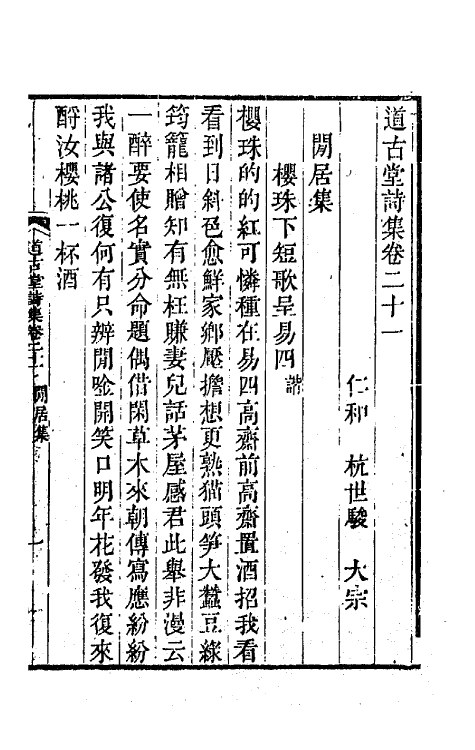 道古堂詩集卷二十一
仁和 杭世駿 大宗
閒居集
櫻珠下短歌呈易四諧
櫻珠的的紅可憐種在易四高齋前高齋置酒招我看
看到日斜色愈鮮家鄉壓擔想更熟猫頭笋大蠶豆綠
筠籠相贈知有無枉賺妻兒話茅屋感君此舉非漫云
一醉要使名實分命題偶借閑草木來朝傳寫應紛紛
我與諸公復何有只辦閒唫開笑口明年花發我復來
酹汝櫻桃一杯酒
道古堂詩集卷二十一 閒居集